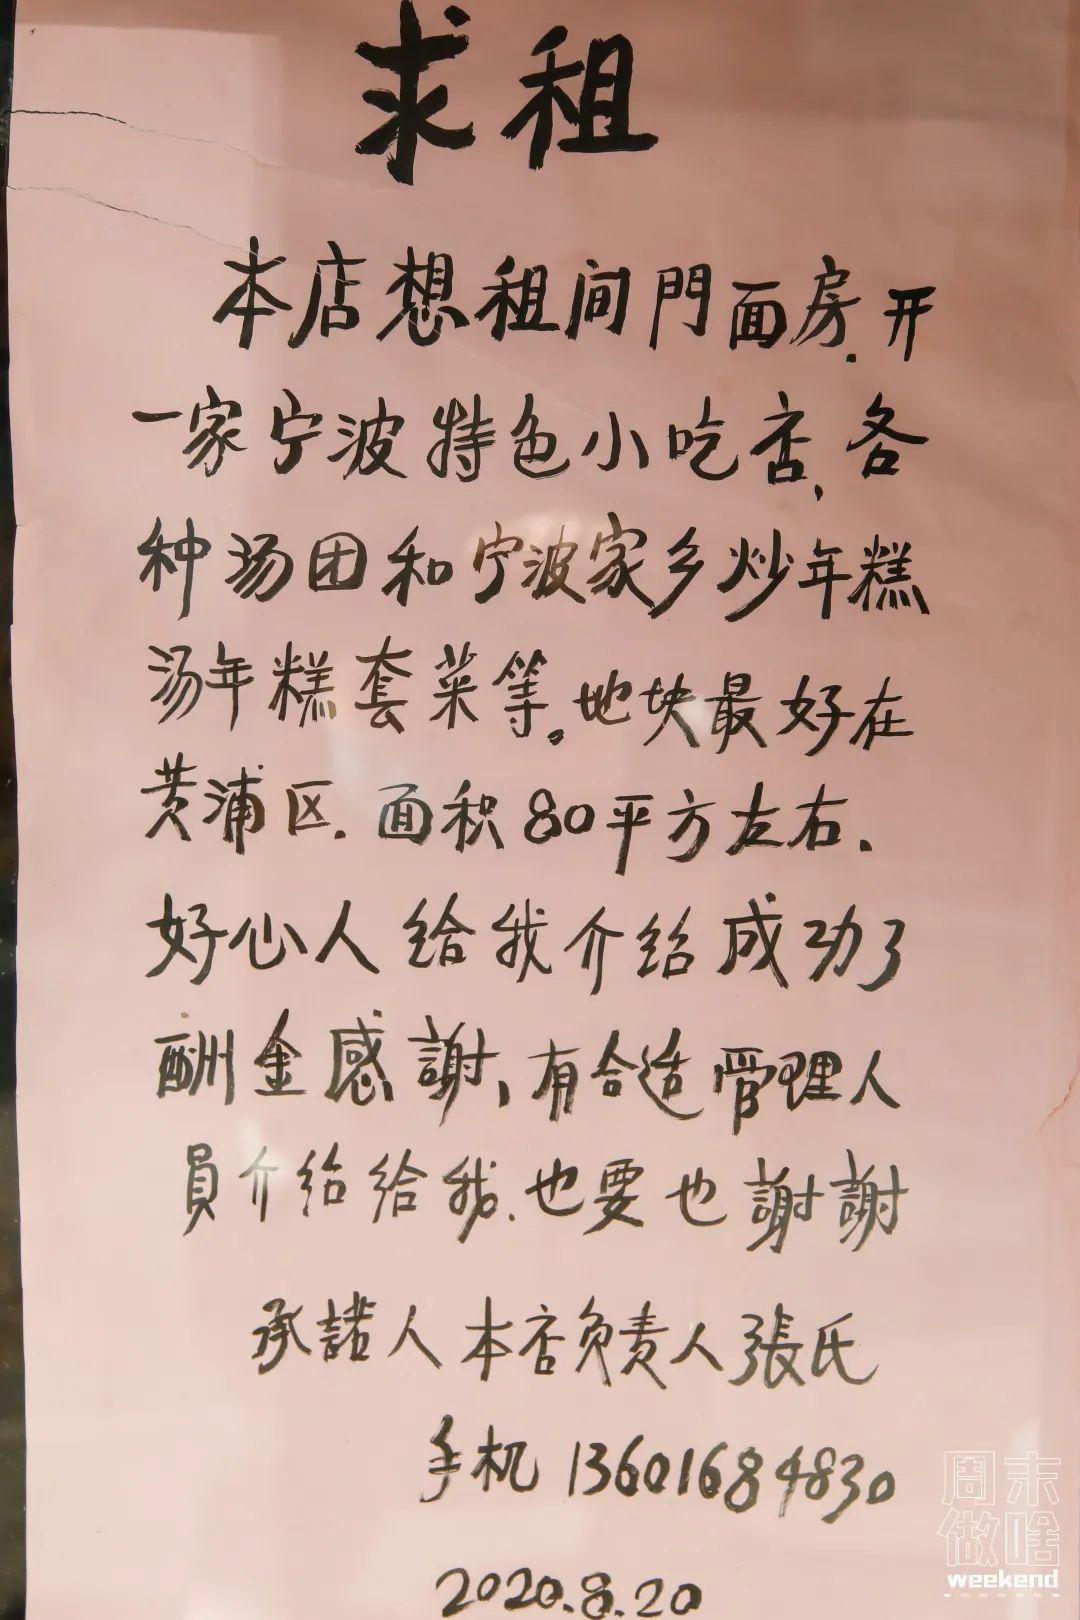 求租
本店想租间門面房.开
一家宁波特色小吃店,各
种汤团和宁波家乡炒年糕
汤年糕套菜等。地块最好在
黄浦区.面积80平方左右.
好心人给我介绍成功了
酬金感謝,有合适管理人
員介绍给我.也要也謝謝
承諾人本店负责人張氏
手机 13601684830
2020.8.20
周末
做啥
weekend